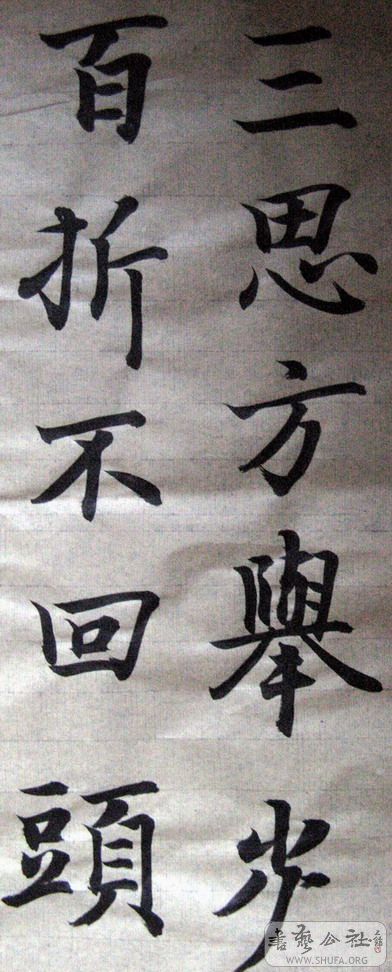 三思方舉步
百折不回頭
書藝公社
WWW.SHUFA.ORG